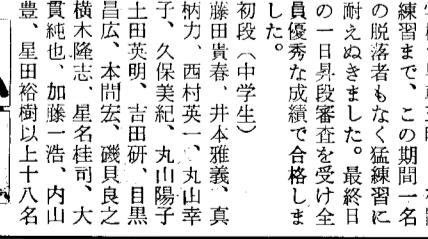 練習まで、この期間一名
の脱落者もなく猛練習に
耐えぬきました。最終日
の一日昇段審査を受け全
員優秀な成績で合格しま
した。
初段（中学生）
藤田貴春、井本雅義、真
柄力、西村英一、丸山幸
子、久保美紀、丸山陽子
土田英明、吉田研、目黒
昌広、本間宏、磯貝良之
横木隆志、星名桂司、大
貫純也、加藤一浩、内山
豊、星田裕樹以上十八名